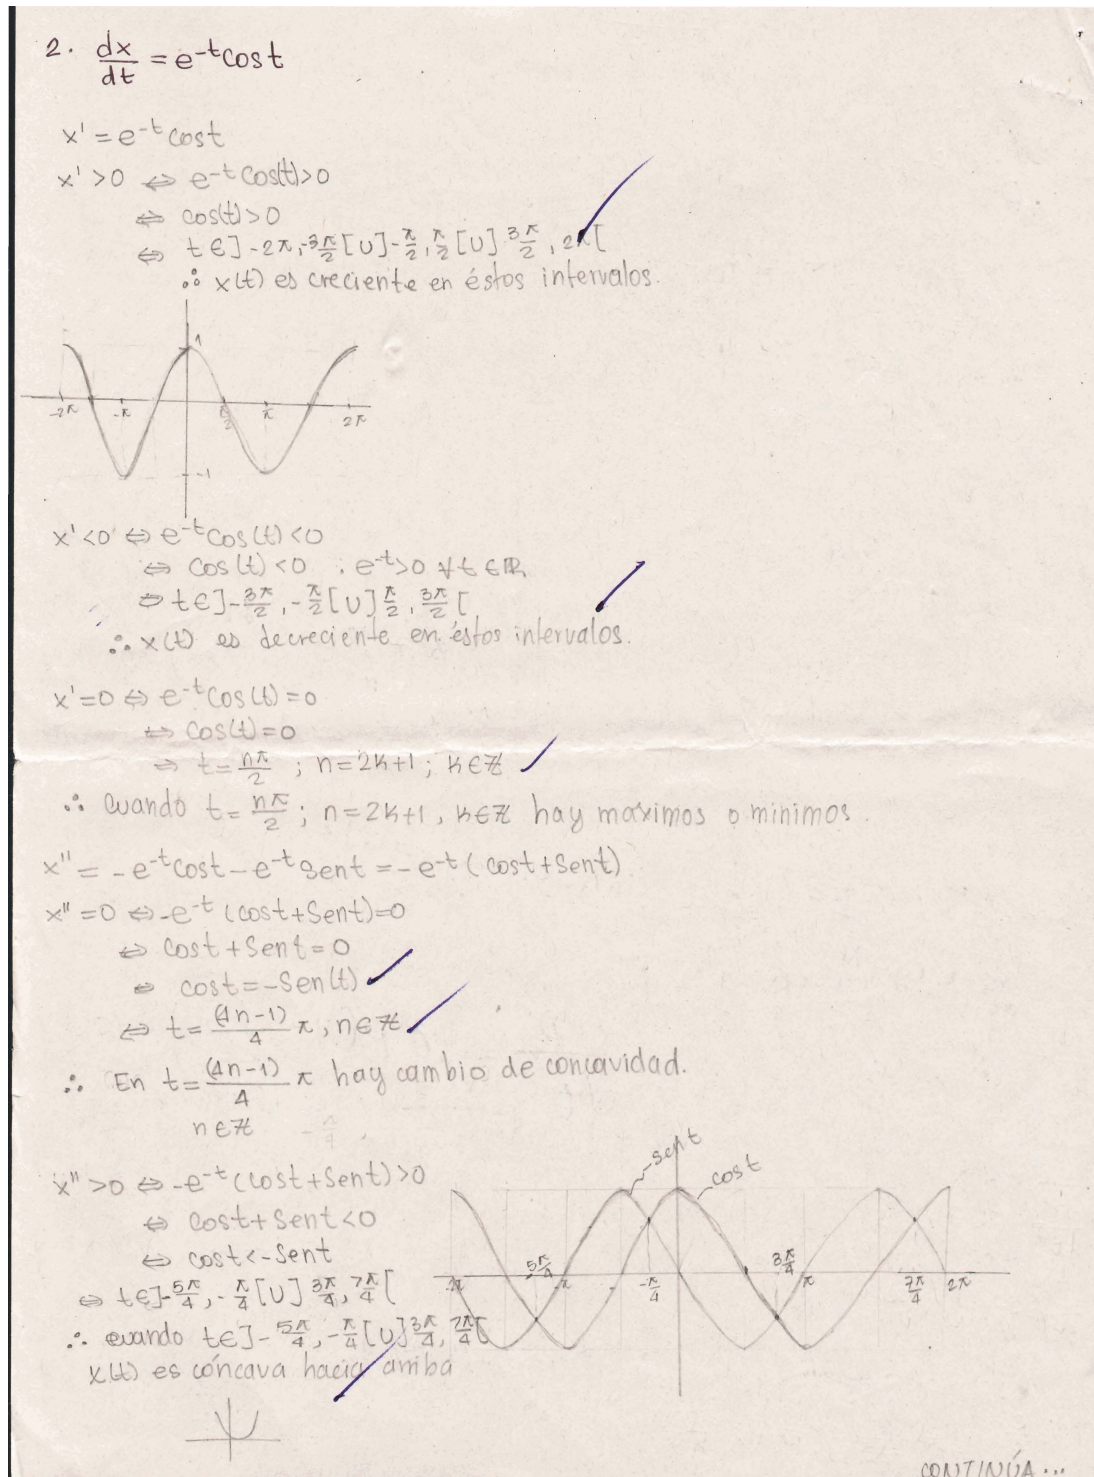 2. dx/dt = e^-t cost
x' = e^-t cost
x' >0 ⇔ e^-t cos(t)>0
⇔ cos(t)>0
⇔ t∈]-2π,-3π/2[∪]-π/2,π/2[∪]3π/2, 2π[
∴ x(t) es creciente en éstos intervalos.
1
-2π -π π/2 π 2π
-1
x' <0 ⇔ e^-t cos(t)<0
⇔ cos(t)<0 ; e^-t>0 ∀t∈ℝ
⇔ t∈]-3π/2, -π/2[∪]π/2, 3π/2[
∴ x(t) es decreciente en éstos intervalos.
x'=0 ⇔ e^-t cos(t)=0
⇔ cos(t)=0
⇔ t=nπ/2 ; n=2k+1; k∈ℤ
∴ cuando t=nπ/2; n=2k+1, k∈ℤ hay maximos o minimos.
x'' = -e^-t cost - e^-t sent = -e^-t (cost+sent)
x'' =0 ⇔ -e^-t (cost+sent)=0
⇔ cost+sent=0
⇔ cost=-sen(t)
⇔ t=(4n-1)/4 π, n∈ℤ
∴ En t=(4n-1)/4 π hay cambio de concavidad.
n∈ℤ
x'' >0 ⇔ -e^-t (cost+sent)>0
⇔ cost+sent<0
⇔ cost<-sent
⇔ t∈]-5π/4, -π/4[∪]3π/4, 7π/4[
∴ cuando t∈]-5π/4, -π/4[∪]3π/4, 7π/4[
x(t) es cóncava hacia arriba
-sent
cost
-2π 5π/4 -π -π/4 3π/4 π 7π/4 2π
CONTINÚA...